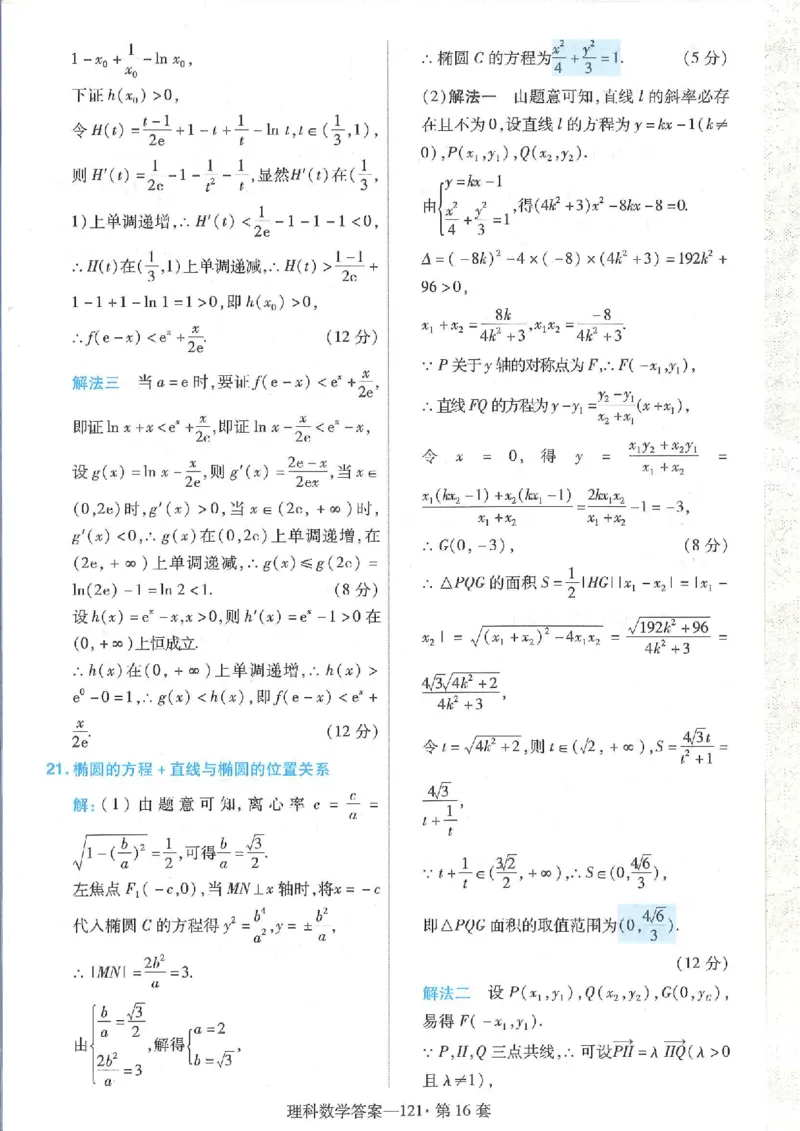 1-x₀+1/x₀-ln x₀,
下证h(x₀)>0,
令H(t)=(t-1)/2e+1-t+1/t-ln t,t∈(1/3,1),
则H′(t)=1/2e-1-1/t²-1/t,显然H′(t)在(1/3,
1)上单调递增,∴H′(t)<1/2e-1-1-1<0,
∴H(t)在(1/3,1)上单调递减,∴H(t)>(1-1)/2e+
1-1+1-ln 1=1>0,即h(x₀)>0,
∴f(e-x)<eˣ+x/2e. (12分)
解法三 当a=e时,要证f(e-x)<eˣ+x/2e,
即证ln x+x<eˣ+x/2e,即证ln x-x/2e<eˣ-x,
设g(x)=ln x-x/2e,则g′(x)=(2e-x)/2ex,当x∈
(0,2e)时,g′(x)>0,当x∈(2e,+∞)时,
g′(x)<0,∴g(x)在(0,2e)上单调递增,在
(2e,+∞)上单调递减,∴g(x)≤g(2e)=
ln(2e)-1=ln 2<1. (8分)
设h(x)=eˣ-x,x>0,则h′(x)=eˣ-1>0在
(0,+∞)上恒成立.
∴h(x)在(0,+∞)上单调递增,∴h(x)>
e⁰-0=1,∴g(x)<h(x),即f(e-x)<eˣ+
x/2e. (12分)
21.椭圆的方程+直线与椭圆的位置关系
解:(1)由题意可知,离心率e=c/a=
√(1-(b/a)²)=1/2,可得b/a=√3/2.
左焦点F₁(-c,0),当MN⊥x轴时,将x=-c
代入椭圆C的方程得y²=b⁴/a²,y=±b²/a,
∴|MN|=2b²/a=3.
由{b/a=√3/2, 2b²/a=3,解得{a=2, b=√3,
∴椭圆C的方程为x²/4+y²/3=1. (5分)
(2)解法一 由题意可知,直线l的斜率必存
在且不为0,设直线l的方程为y=kx-1(k≠
0),P(x₁,y₁),Q(x₂,y₂).
由{y=kx-1, x²/4+y²/3=1,得(4k²+3)x²-8kx-8=0.
Δ=(-8k)²-4×(-8)×(4k²+3)=192k²+
96>0,
x₁+x₂=8k/(4k²+3),x₁x₂=-8/(4k²+3).
∵P关于y轴的对称点为F,∴F(-x₁,y₁),
∴直线FQ的方程为y-y₁=(y₂-y₁)/(x₂+x₁)(x+x₁),
令x=0,得y=(x₁y₂+x₂y₁)/(x₁+x₂)=
(x₁(kx₂-1)+x₂(kx₁-1))/(x₁+x₂)=2kx₁x₂/(x₁+x₂)-1=-3,
∴G(0,-3), (8分)
∴△PQG的面积S=1/2|HG||x₁-x₂|=|x₁-
x₂|=√((x₁+x₂)²-4x₁x₂)=√(192k²+96)/(4k²+3)=
4√3√(4k²+2)/(4k²+3),
令t=√(4k²+2),则t∈(√2,+∞),S=4√3t/(t²+1)=
4√3/(t+1/t),
∵t+1/t∈(3√2/2,+∞),∴S∈(0,4√6/3),
即△PQG面积的取值范围为(0,4√6/3).
(12分)
解法二 设P(x₁,y₁),Q(x₂,y₂),G(0,y_G),
易得F(-x₁,y₁).
∵P,H,Q三点共线,∴可设PH→=λHQ→(λ>0
且λ≠1),
理科数学答案—121·第16套